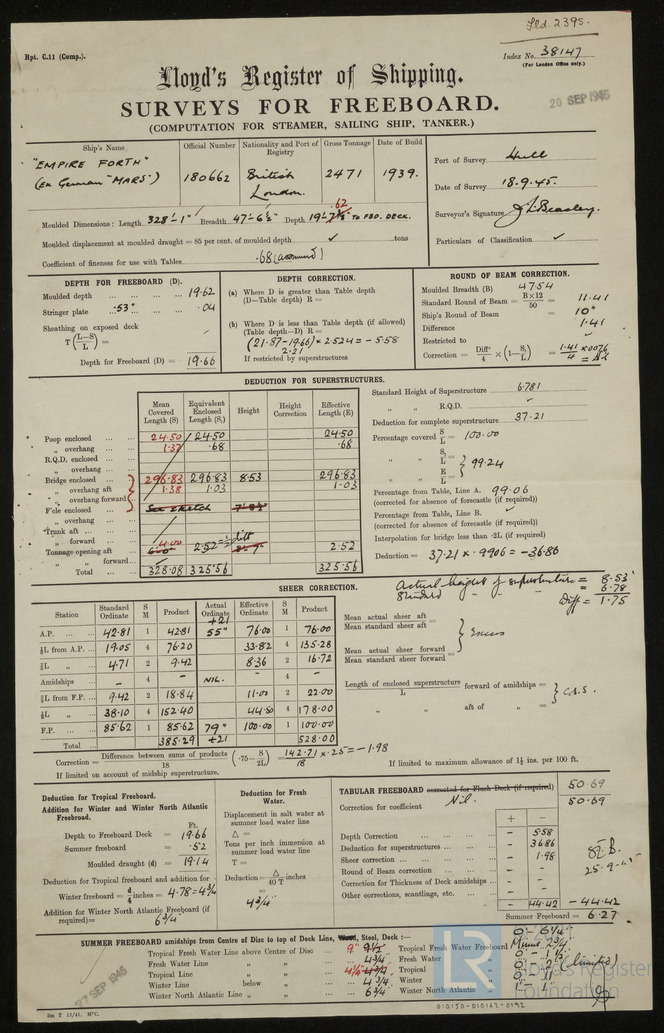 Fld. 2395.
Rpt. C.11 (Comp.).
Index No. 38147
(For London Office only.)
Lloyd's Register of Shipping.
20 SEP 1945
SURVEYS FOR FREEBOARD.
(COMPUTATION FOR STEAMER, SAILING SHIP, TANKER.)
Ship's Name Official Number Nationality and Port of Registry Gross Tonnage Date of Build
"EMPIRE FORTH" (Ex German "MARS") 180662 British London. 2471 1939.
Port of Survey Hull
Date of Survey 18.9.45.
Surveyor's Signature
Particulars of Classification ✓
Moulded Dimensions: Length 328'-1" Breadth 47'-6½" Depth 19'-7½" .62 TO FBD. DECK.
Moulded displacement at moulded draught = 85 per cent. of moulded depth ✓ tons
Coefficient of fineness for use with Tables .68 (assumed)
DEPTH FOR FREEBOARD (D).
Moulded depth ... 19.62
Stringer plate .53" ... .04
Sheathing on exposed deck
T (L–S / L) =
Depth for Freeboard (D) = 19.66
DEPTH CORRECTION.
(a) Where D is greater than Table depth
(D–Table depth) R =
(b) Where D is less than Table depth (if allowed)
(Table depth–D) R =
(21.87-19.66) × 2.524 = -5.58
2.21
If restricted by superstructures
ROUND OF BEAM CORRECTION.
Moulded Breadth (B) 47.54
Standard Round of Beam = B×12 / 50 = 11.41
Ship's Round of Beam = 10"
Difference 1.41
Restricted to ✓
Correction = Diffce / 4 × (1–S₁/L) = 1.41/4 × .0076 = Nil
DEDUCTION FOR SUPERSTRUCTURES.
Mean Covered Length (S) Equivalent Enclosed Length (S₁) Height Height Correction Effective Length (E)
Poop enclosed 24.50 24.50 24.50
„ overhang 1.37 .68 .68
R.Q.D. enclosed
„ overhang
Bridge enclosed 296.83 296.83 8.53 296.83
„ overhang aft 1.38 1.03 1.03
„ overhang forward
F'cle enclosed See sketch 7'-8½"
„ overhang
Trunk aft
„ forward
Tonnage opening aft 4.00 2.52 2.52
„ „ forward
Total 328.08 325.56 325.56
Standard Height of Superstructure 6.781
„ „ R.Q.D. ✓
Deduction for complete superstructure 37.21
Percentage covered S/L = 100.00
„ „ S₁/L = E/L = 99.24
Percentage from Table, Line A. 99.06
(corrected for absence of forecastle (if required))
Percentage from Table, Line B. ✓
(corrected for absence of forecastle (if required))
Interpolation for bridge less than ·2L (if required)
Deduction = 37.21 × .9906 = -36.86
SHEER CORRECTION.
Actual height of superstructure = 8.53'
Standard „ „ „ = 6.78
Diff = 1.75
Station Standard Ordinate S M Product Actual Ordinate +21 Effective Ordinate S M Product
A.P. 42.81 1 42.81 55" 76.00 1 76.00
⅙L from A.P. 19.05 4 76.20 33.82 4 135.28
⅓L „ 4.71 2 9.42 8.36 2 16.72
Amidships - 4 - NIL. - 4 -
⅓L from F.P. 9.42 2 18.84 11.00 2 22.00
⅙L „ 38.10 4 152.40 44.50 4 178.00
F.P. 85.62 1 85.62 79" 100.00 1 100.00
Total 385.29 +21 528.00
Mean actual sheer aft
Mean standard sheer aft =
Excess
Mean actual sheer forward
Mean standard sheer forward =
Length of enclosed superstructure / L forward of amidships =
C.S.S.
„ „ aft of „ =
Correction = Difference between sums of products / 18 (·75– S/2L) = 142.71/18 × .25 = -1.98
If limited on account of midship superstructure.
If limited to maximum allowance of 1½ ins. per 100 ft.
Deduction for Tropical Freeboard.
Addition for Winter and Winter North Atlantic Freeboard.
Ft.
Depth to Freeboard Deck = 19.66
Summer freeboard = .52
Moulded draught (d) = 19.14
Deduction for Tropical freeboard and addition for
Winter freeboard = d/4 inches = 4.78 = 4¾
Addition for Winter North Atlantic Freeboard (if required) = 6¾"
Deduction for Fresh Water.
Displacement in salt water at summer load water line
Δ =
Tons per inch immersion at summer load water line
T =
Deduction = Δ / 40 T inches
=
4¾"
TABULAR FREEBOARD corrected for Flush Deck (if required) 50.69
Correction for coefficient Nil. 50.69
+ –
Depth Correction - 5.58
Deduction for superstructures - 36.86
Sheer correction - 1.98
Round of Beam correction - -
Correction for Thickness of Deck amidships - -
Other corrections, scantlings, etc. -
- 44.42 -44.42
Summer Freeboard = 6.27
25-9-45
SUMMER FREEBOARD amidships from Centre of Disc to top of Deck Line, Wood, Steel, Deck :—
Tropical Fresh Water Line above Centre of Disc 9" 9½
Fresh Water Line „ „ 4¾
Tropical Line „ „ 4¾
Winter Line below „ 4¾
Winter North Atlantic Line „ „ 6¾
0-6¼
Tropical Fresh Water Freeboard Minus 2¾"
Fresh Water „ 0-1½
Tropical „ (limited)
Winter „
Winter North Atlantic „
27 SEP 1945
LR
Lloyd's Register Foundation
010150-010162-0192